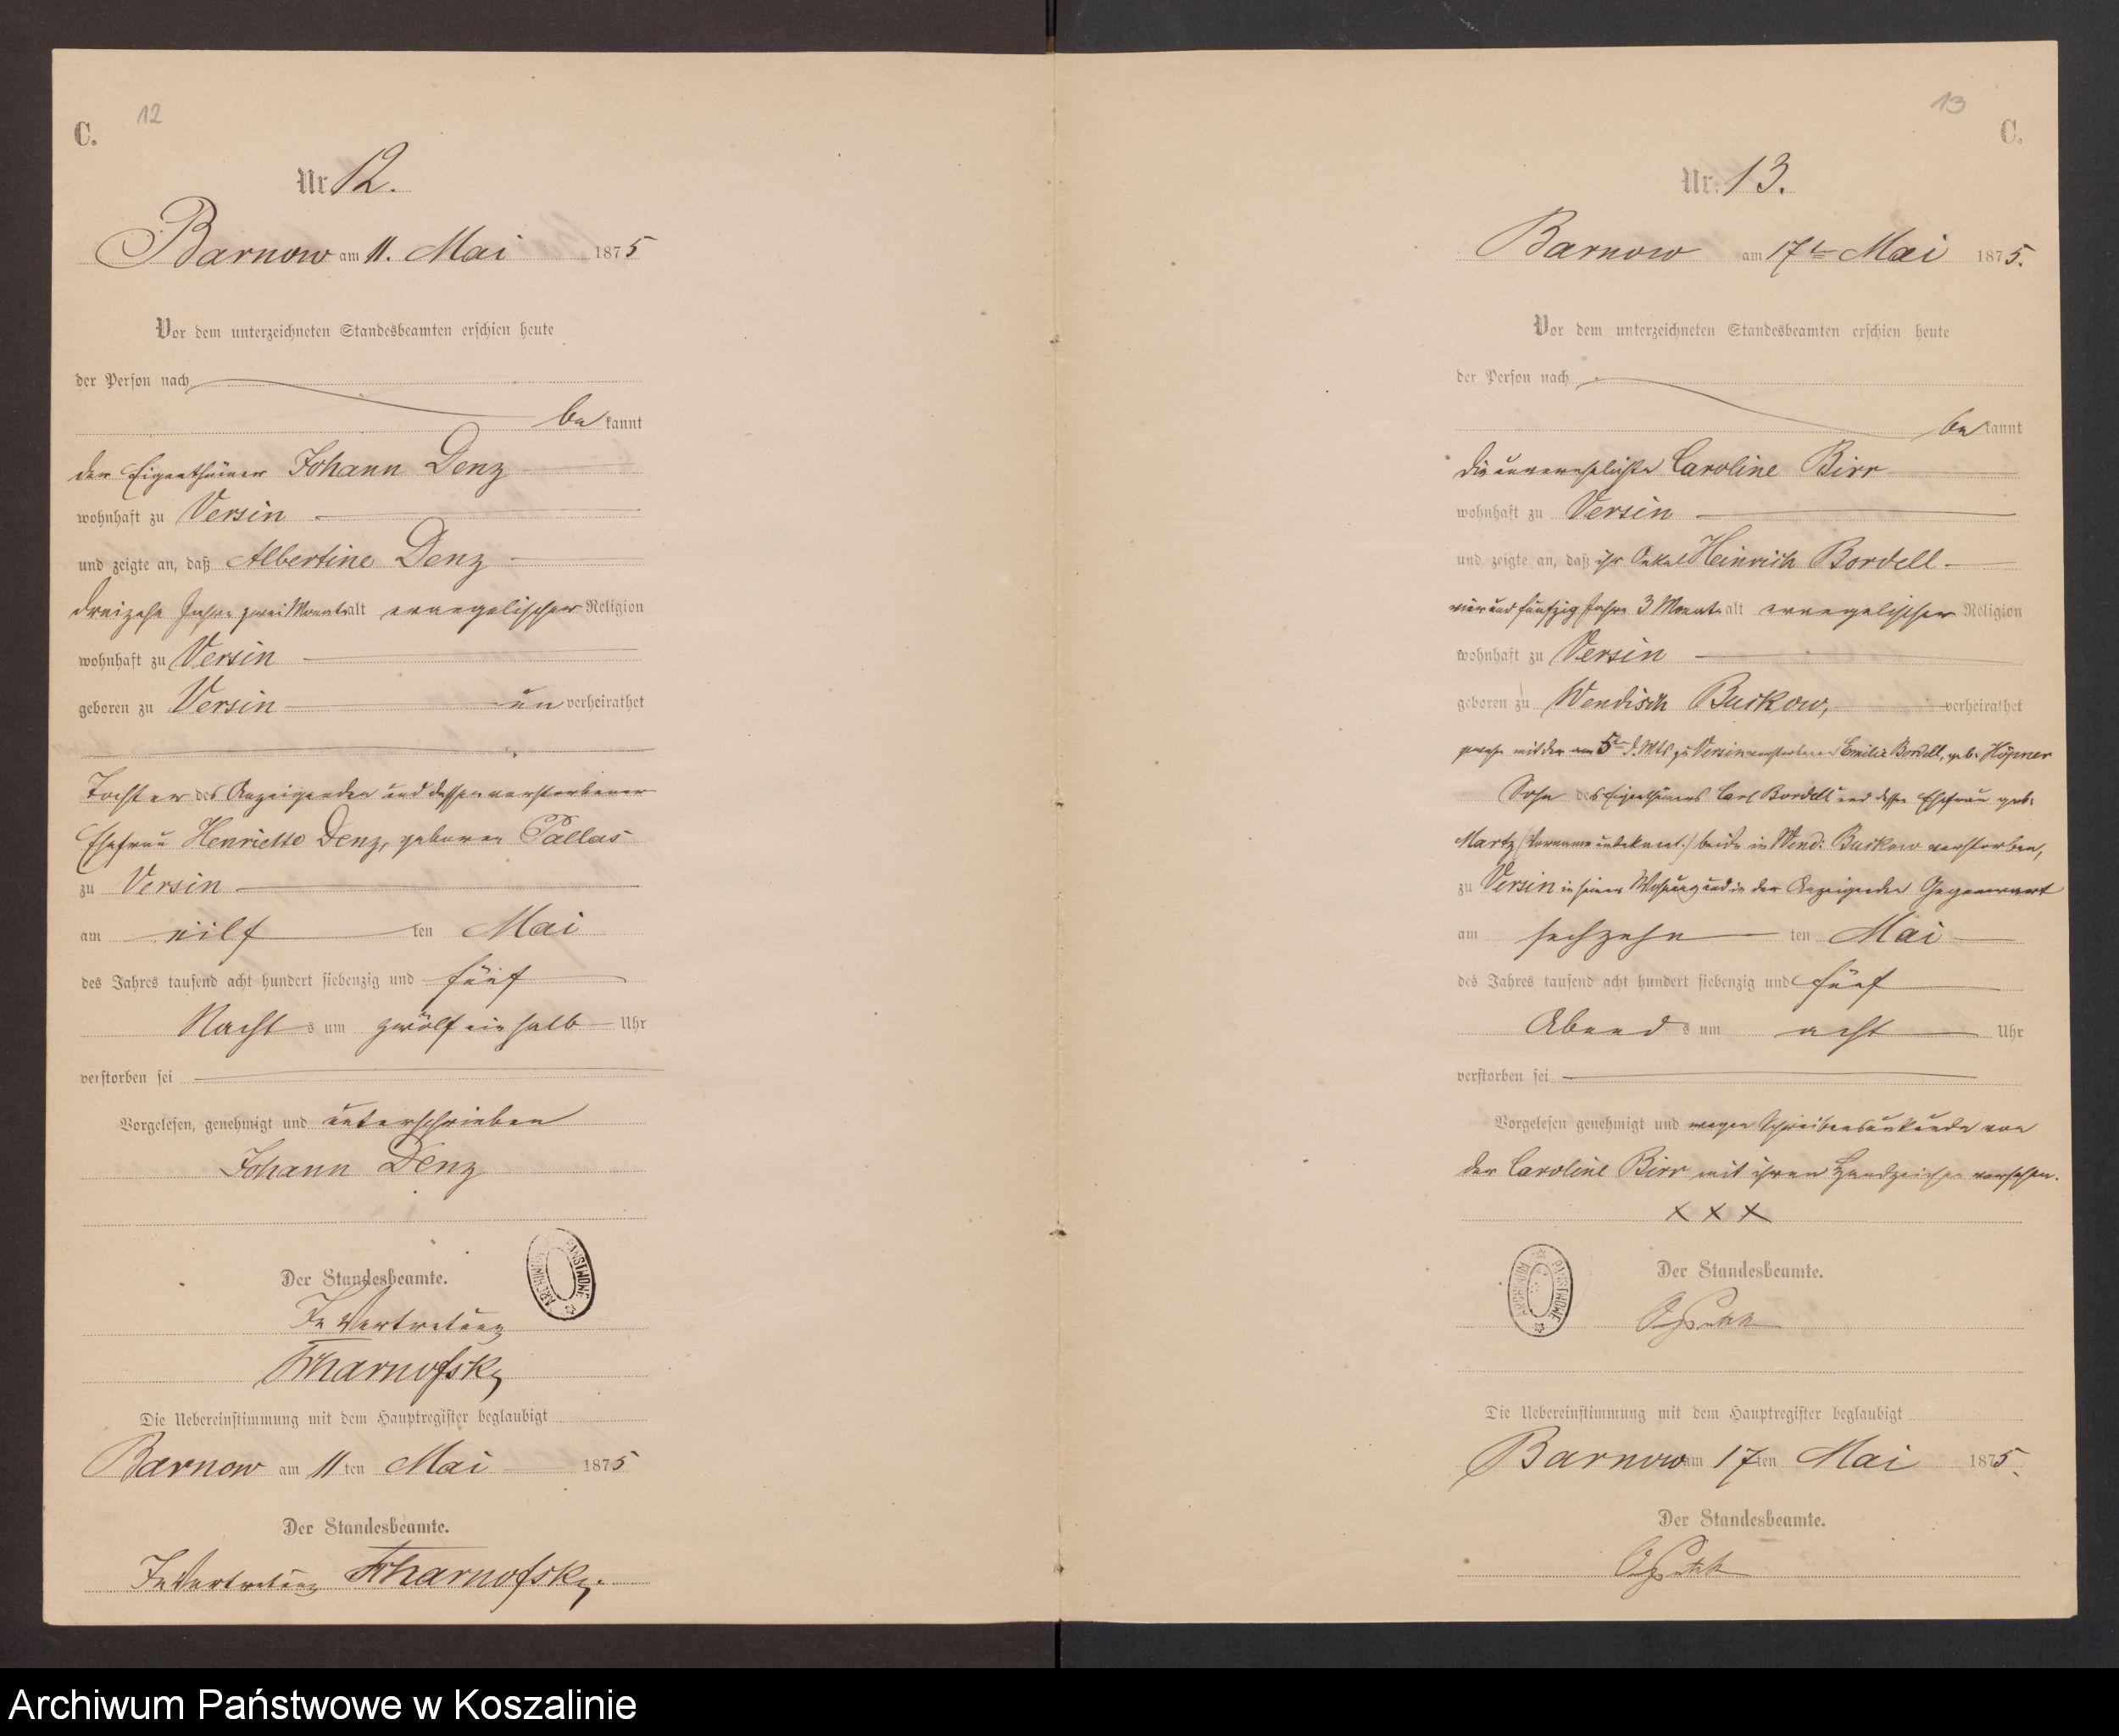 12
C.
Nr 12.
Barnow am 11. Mai 1875
Vor dem unterzeichneten Standesbeamten erschien heute
der Person nach
be kannt
der Eigenthümer Johann Denz
wohnhaft zu Versin
und zeigte an, daß Albertine Denz
dreizehn Jahre zwei Monate alt evangelischer Religion
wohnhaft zu Versin
geboren zu Versin un verheirathet
Tochter des Anzeigenden und dessen verstorbener
Ehefrau Henriette Denz, geboren Pallas
zu Versin
am eilf ten Mai
des Jahres tausend acht hundert siebenzig und fünf
Nacht s um zwölf einhalb Uhr
verstorben sei
Vorgelesen, genehmigt und unterschrieben
Johann Denz
ARCHIWUM PAŃSTWOWE
Der Standesbeamte.
In Vertretung
Die Uebereinstimmung mit dem Hauptregister beglaubigt
Barnow am 11 ten Mai 1875
Der Standesbeamte.
In Vertretung
13
C.
Nr. 13.
Barnow am 17t Mai 1875.
Vor dem unterzeichneten Standesbeamten erschien heute
der Person nach
be kannt
die unverehelichte Caroline Birr
wohnhaft zu Versin
und zeigte an, daß ihr Onkel Heinrich Bordell
vier und fünfzig Jahre 3 Monate alt evangelischer Religion
wohnhaft zu Versin
geboren zu Wendisch Buckow, verheirathet
gewesen mit der am 5t d. Mts zu Versin verstorbenen Emilie Bordell, geb. Höpner
Sohn des Eigenthümers Carl Bordell und dessen Ehefrau geb.
Martz (Vorname unbekannt.) beide in Wend. Buckow verstorben,
zu Versin in seiner Wohnung und in der Anzeigenden Gegenwart
am sechzehn ten Mai
des Jahres tausend acht hundert siebenzig und fünf
Abend s um acht Uhr
verstorben sei
Vorgelesen genehmigt und wegen Schreibensunkunde von
der Caroline Birr mit ihren Handzeichen versehen.
x x x
ARCHIWUM PAŃSTWOWE
Der Standesbeamte.
Die Uebereinstimmung mit dem Hauptregister beglaubigt
Barnow am 17 ten Mai 1875.
Der Standesbeamte.
Archiwum Państwowe w Koszalinie